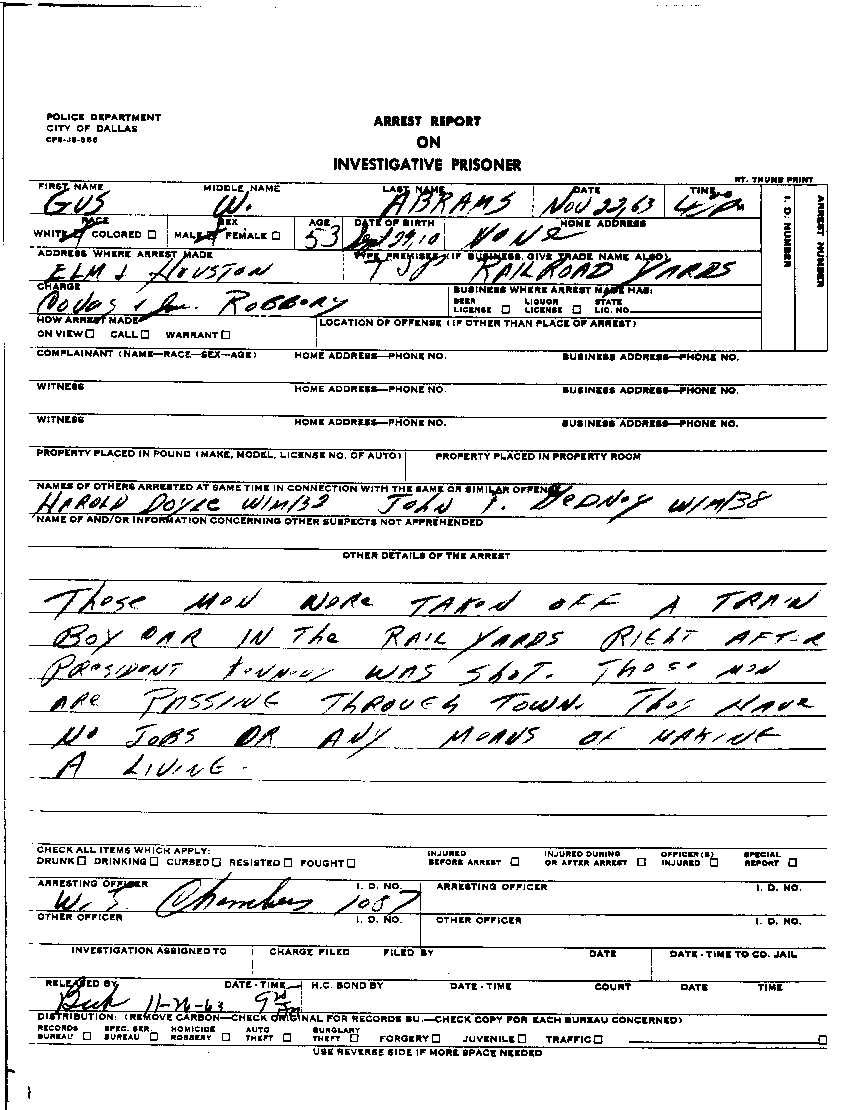 POLICE DEPARTMENT
CITY OF DALLAS
ARREST REPORT
ON
INVESTIGATIVE PRISONER
RT. THUMB PRINT
FIRST NAME MIDDLE NAME LAST NAME DATE TIME
GUS W. ABRAMS NOV 22, 63
I. D. NUMBER
ARREST NUMBER
RACE SEX AGE DATE OF BIRTH HOME ADDRESS
WHITE COLORED MALE FEMALE 53 NONE
ADDRESS WHERE ARREST MADE TYPE PREMISES (IF BUSINESS, GIVE TRADE NAME ALSO)
ELM & HOUSTON RAILROAD YARDS
CHARGE BUSINESS WHERE ARREST MADE HAS:
ROBBERY BEER LICENSE LIQUOR LICENSE STATE LIC. NO.
HOW ARREST MADE LOCATION OF OFFENSE (IF OTHER THAN PLACE OF ARREST)
ON VIEW CALL WARRANT
COMPLAINANT (NAME—RACE—SEX—AGE) HOME ADDRESS—PHONE NO. BUSINESS ADDRESS—PHONE NO.
WITNESS HOME ADDRESS—PHONE NO. BUSINESS ADDRESS—PHONE NO.
WITNESS HOME ADDRESS—PHONE NO. BUSINESS ADDRESS—PHONE NO.
PROPERTY PLACED IN POUND (MAKE, MODEL, LICENSE NO. OF AUTO) PROPERTY PLACED IN PROPERTY ROOM
NAMES OF OTHERS ARRESTED AT SAME TIME IN CONNECTION WITH THE SAME OR SIMILAR OFFENSE
HAROLD DOYLE W/M/32 JOHN F. GEDNEY W/M/38
NAME OF AND/OR INFORMATION CONCERNING OTHER SUSPECTS NOT APPREHENDED
OTHER DETAILS OF THE ARREST
THESE MEN WERE TAKEN OFF A TRAIN
BOX CAR IN THE RAIL YARDS RIGHT AFTER
PRESIDENT KENNEDY WAS SHOT. THESE MEN
ARE PASSING THROUGH TOWN. THEY HAVE
NO JOBS OR ANY MEANS OF MAKING
A LIVING.
CHECK ALL ITEMS WHICH APPLY:
DRUNK DRINKING CURSED RESISTED FOUGHT INJURED BEFORE ARREST INJURED DURING OR AFTER ARREST OFFICER(S) INJURED SPECIAL REPORT
ARRESTING OFFICER I. D. NO. ARRESTING OFFICER I. D. NO.
W. E. Chambers 1087
OTHER OFFICER I. D. NO. OTHER OFFICER I. D. NO.
INVESTIGATION ASSIGNED TO CHARGE FILED FILED BY DATE DATE - TIME TO CO. JAIL
RELEASED BY DATE - TIME H.C. BOND BY DATE - TIME COURT DATE TIME
Beck 11-26-63
DISTRIBUTION: (REMOVE CARBON—CHECK ORIGINAL FOR RECORDS BU.—CHECK COPY FOR EACH BUREAU CONCERNED)
RECORDS BUREAU SPEC. SER. BUREAU HOMICIDE ROBBERY AUTO THEFT BURGLARY THEFT FORGERY JUVENILE TRAFFIC
USE REVERSE SIDE IF MORE SPACE NEEDED